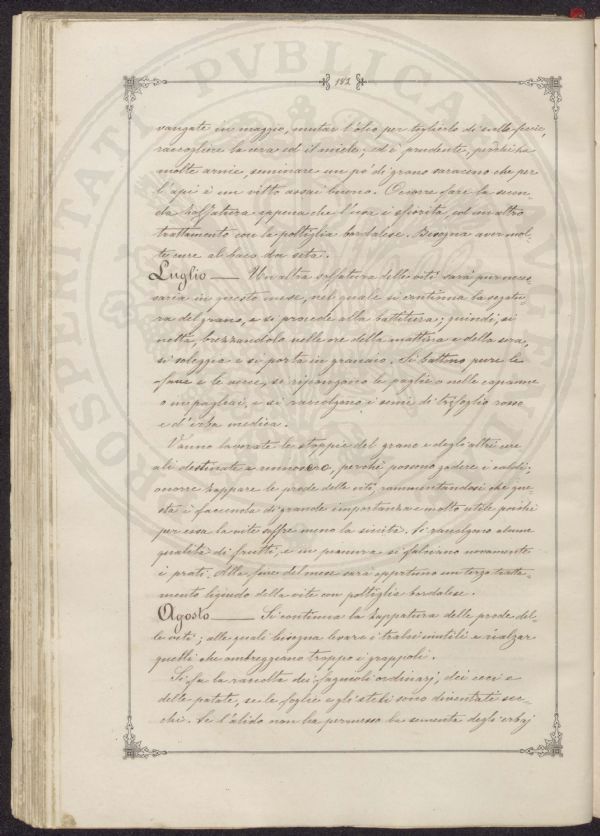 182
vangate in maggio, mutar l'olio per toglierlo di sulle fecie,
raccogliere la cera ed il miele; ed è prudente, perchè ha
molte arnie, seminare un pò di grano saraceno che per
l'api è un vitto assai buono. Occorre fare la secon-
da solfatura appena che l'uva è sfiorita, ed un altro
trattamento con la poltiglia bordalese. Bisogna aver mol-
te cure al baco da seta.
Luglio — Un'altra solfatura delle viti sarà pur neces-
saria in questo mese, nel quale si continua la segatu-
ra del grano, e si procede alla battitura; quindi, si
netta, brezzandolo nelle ore della mattina e della sera,
si soleggia e si porta in granaio. Si battono pure le
fave e le vecce, si ripongono le paglie o nelle capanne
o in pagliai, e si raccolgono i semi di trifoglio rosso
e d'erba medica.
Vanno lavorate le stoppie del grano e degli altri cere
ali destinate a rinnovo, perchè possono godere i caldi;
occorre zappare le prode delle viti, rammentandosi che que-
sta è faccenda di grande importanza e molto utile poichè
per essa la vite soffre meno la siccità. Si raccolgono alcune
qualità di frutti, e in pianura si falciano novamente
i prati. Alla fine del mese sarà opportuno un terzo tratta-
mento liquido della vite con poltiglia bordalese.
Agosto — Si continua la zappatura delle prode del-
le viti; alle quali bisogna levare i tralci inutili e rialzar
quelli che ombreggiano troppo i grappoli.
Si fa la raccolta dei fagiuoli ordinarj, dei ceci e
delle patate, se le foglie e gli steli sono diventati sec-
chi. Se l'alido non ha permesso la sementa degli erbaj
PROSPERITATI PVBLICAE AVGENDAE